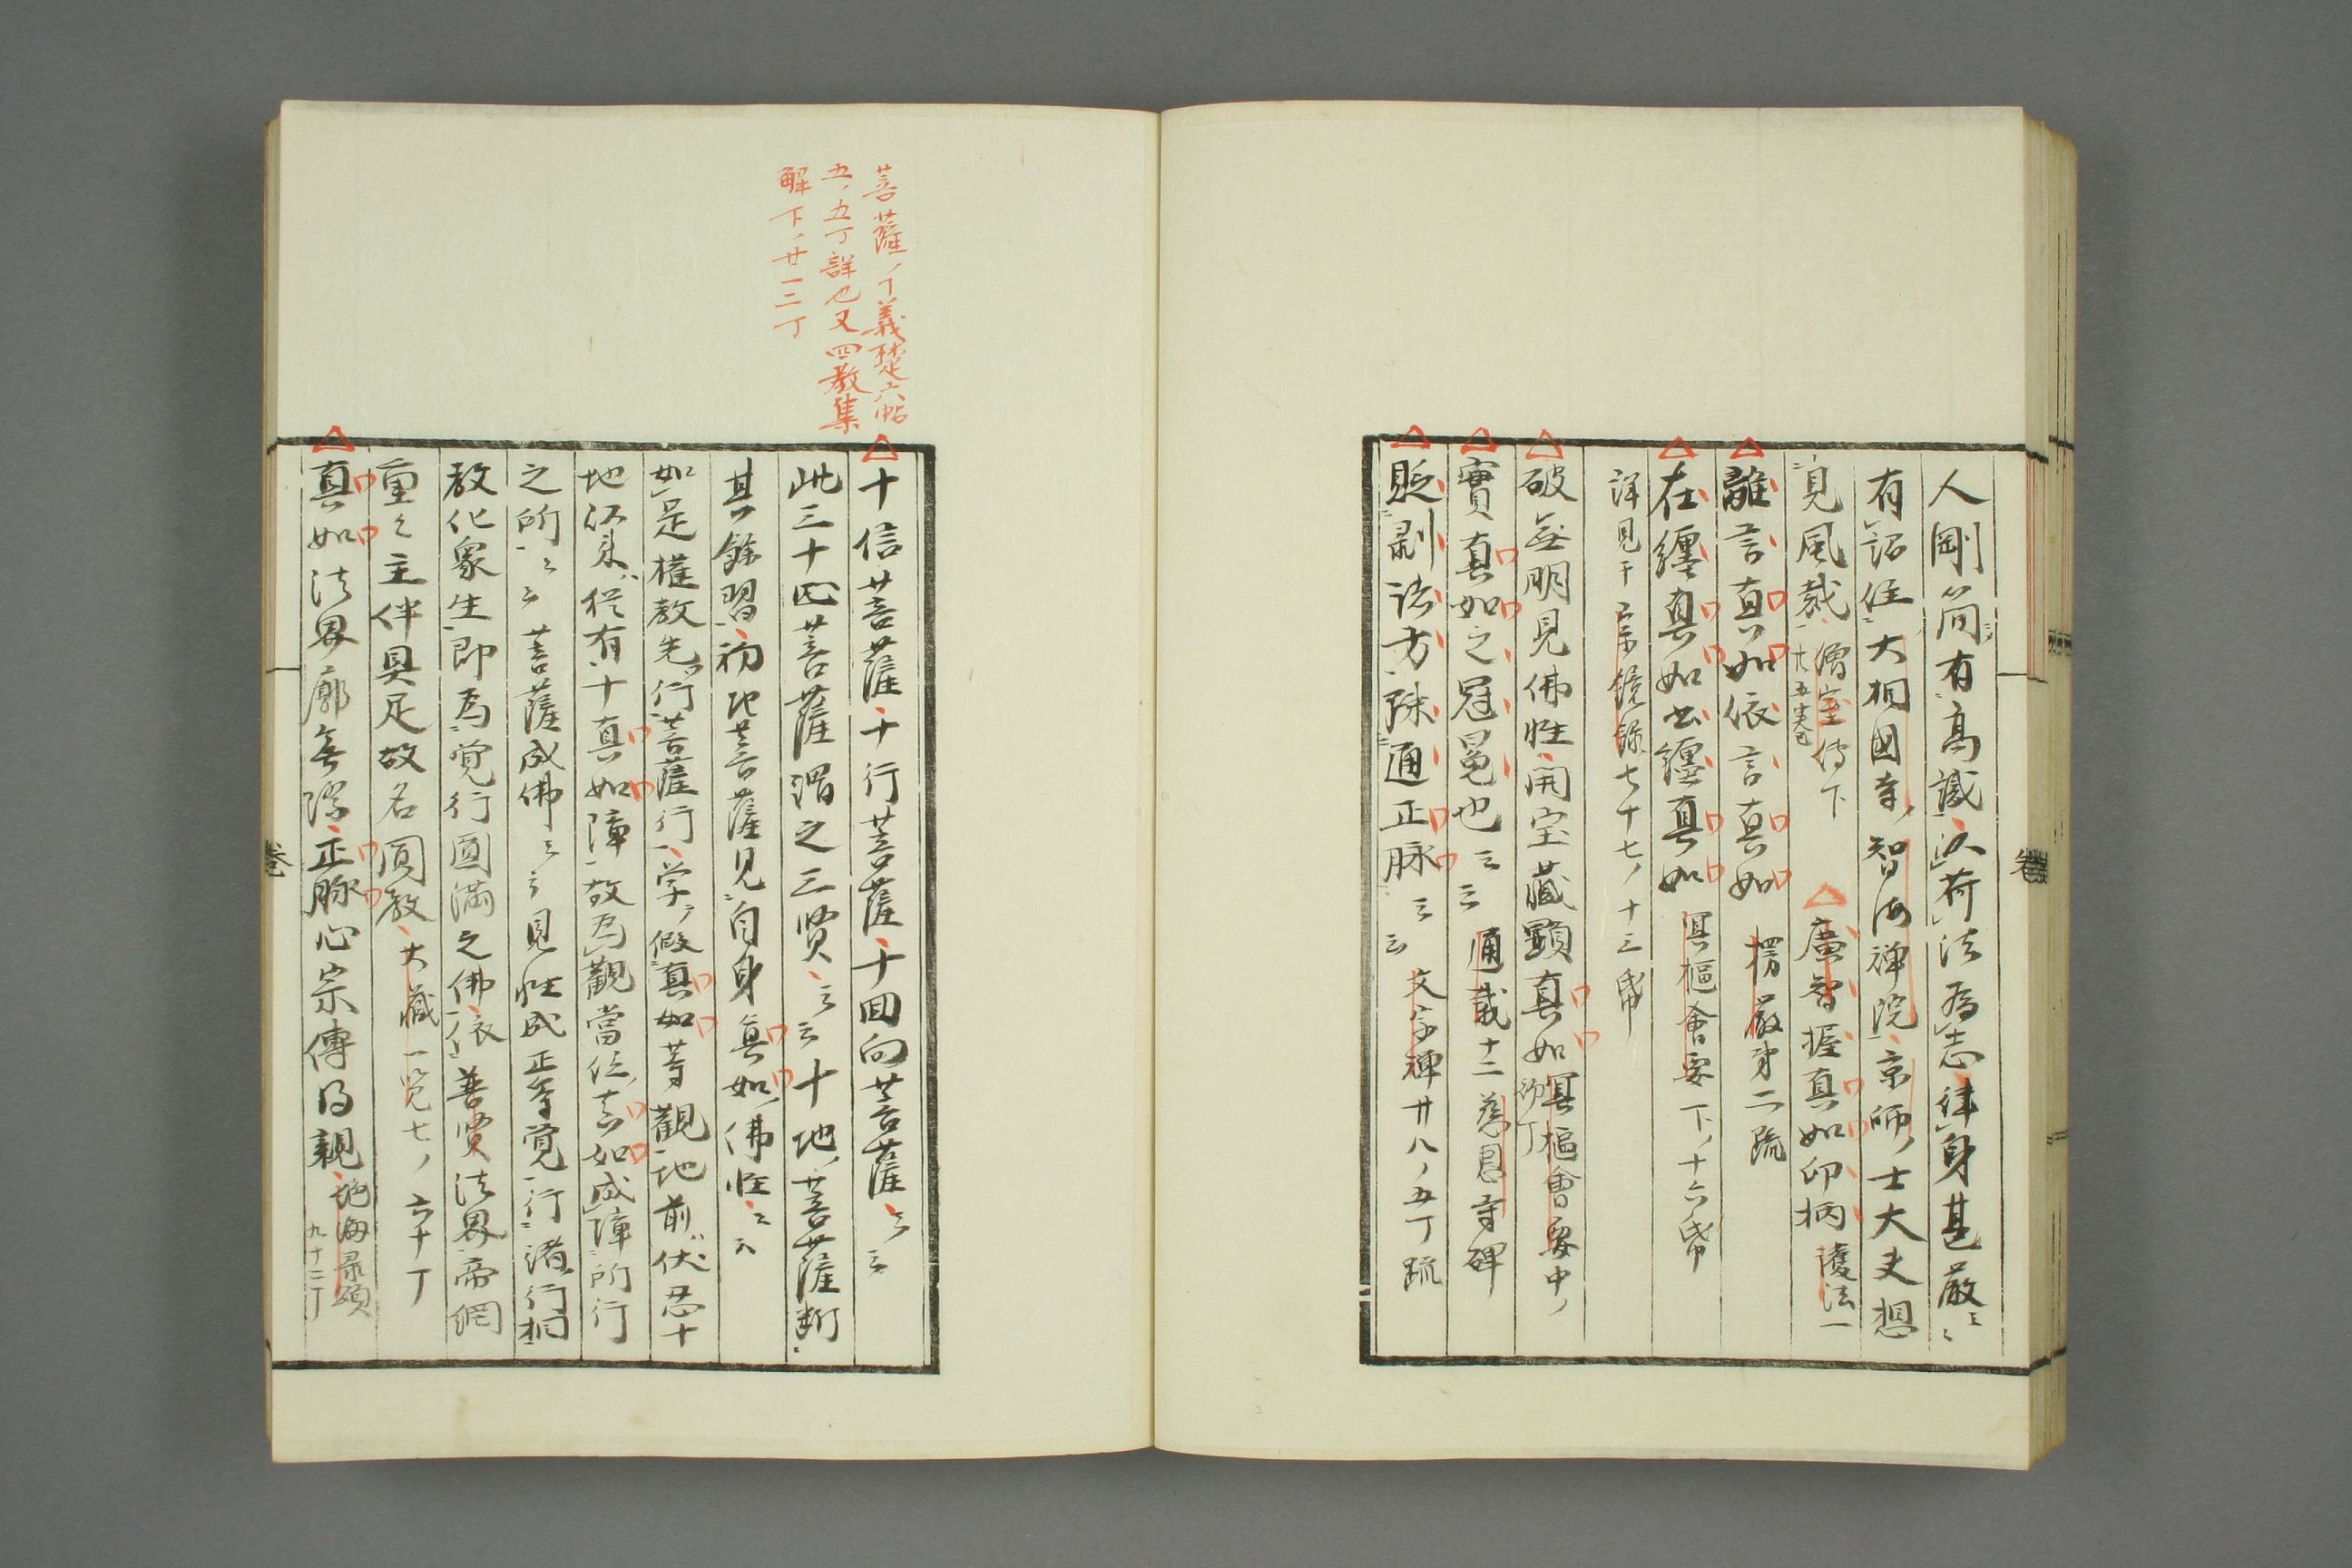 人剛簡有高識以荷法為志律身甚嚴云云
有詔住大相國寺智海禅院京師ノ士大夫想
見風裁 僧宝傳下
廿五巻
△廣智握真如印柄 護法一
△離言真如依言真如 楞嚴弟二疏
△在纏真如出纏真如 冥樞會要下ノ十六帋
詳見于宗鏡録七十七ノ十三帋
△破無明見佛性開宝藏顕真如 冥樞會要中ノ
△實真如之冠冕也云云 通載十二慈恩寺碑
△貶剥諸方踈通正脉云云 文字禅廿八ノ五丁疏
菩薩ノ丁義楚六帖
五ノ五丁詳也又四教集
解下ノ廿一二丁
△十信菩薩十行菩薩十回向菩薩云云
此三十四菩薩謂之三賢云云十地菩薩断
其餘習初地菩薩見自身真如佛性云云
如是權教先行菩薩行学假真如等觀地前伏忍十
地以来従有十真如障故為觀當位真如成障所行
之所云云菩薩成佛云云見性成正等覚行諸行相
教化衆生即為覚行圓滿之佛依普賢法界帝網
重々主伴具足故名圓教 大藏一覧七ノ六十丁
△真如法界廓無際正脉心宗傳得親
九十二丁